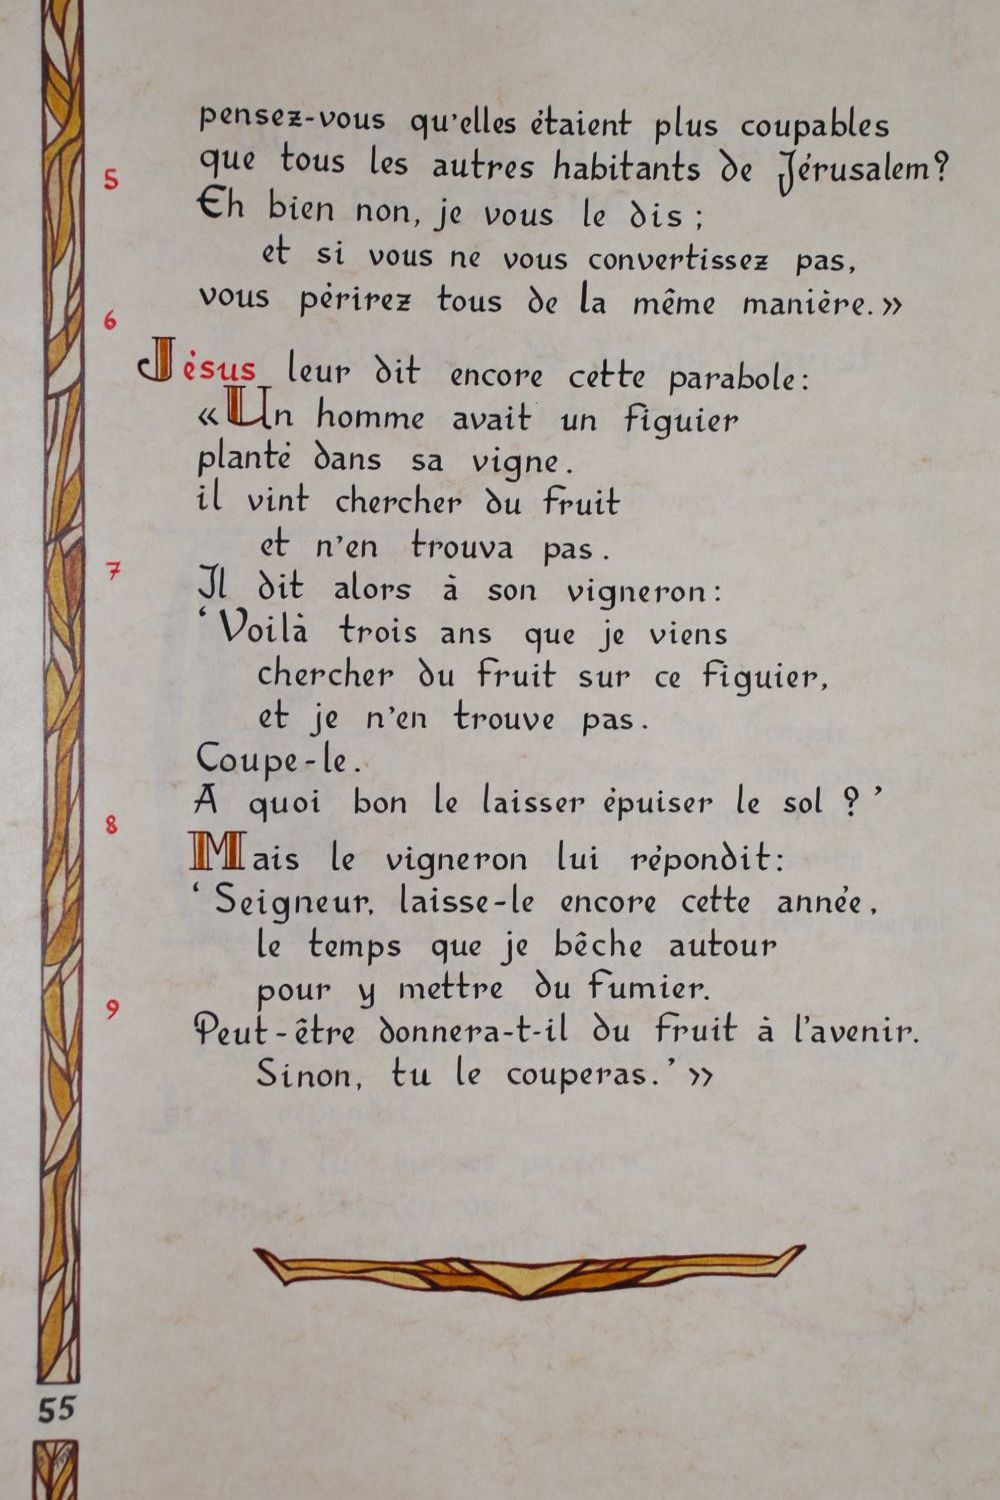 pensez-vous qu'elles étaient plus coupables
que tous les autres habitants de Jérusalem?
5
Eh bien non, je vous le dis ;
et si vous ne vous convertissez pas,
vous périrez tous de la même manière. »
6
Jésus leur dit encore cette parabole :
« Un homme avait un figuier
planté dans sa vigne.
il vint chercher du fruit
et n'en trouva pas.
7
Il dit alors à son vigneron :
‘ Voilà trois ans que je viens
chercher du fruit sur ce figuier,
et je n'en trouve pas.
Coupe-le.
A quoi bon le laisser épuiser le sol ? ’
8
Mais le vigneron lui répondit :
‘ Seigneur, laisse-le encore cette année,
le temps que je bêche autour
pour y mettre du fumier.
9
Peut-être donnera-t-il du fruit à l'avenir.
Sinon, tu le couperas. ’ »
55